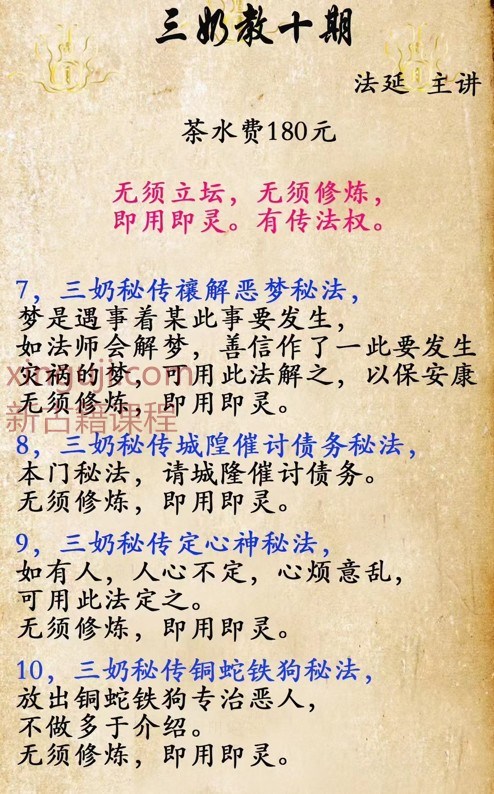 三奶教十期
法延 主讲
茶水费180元
无须立坛，无须修炼，
即用即灵。有传法权。
7，三奶秘传禳解恶梦秘法，
梦是遇事着某此事要发生，
如法师会解梦，善信作了一此要发生
灾祸的梦，可用此法解之，以保安康
无须修炼，即用即灵。
xinguji.com
新古籍课程
8，三奶秘传城隍催讨债务秘法，
本门秘法，请城隆催讨债务。
无须修炼，即用即灵。
9，三奶秘传定心神秘法，
如有人，人心不定，心烦意乱，
可用此法定之。
无须修炼，即用即灵。
10，三奶秘传铜蛇铁狗秘法，
放出铜蛇铁狗专治恶人，
不做多于介绍。
无须修炼，即用即灵。